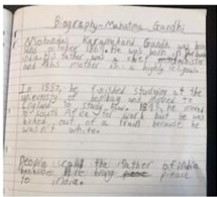 Biography - Mahatma Gandhi
Mohandas Karamchand Gandhi was born
october 1869. He was born in
His father was a chief minister
and his mother is a highly religious
In 1887, he finished studying at the
university of bombay was moved to
england to study law. 1893, he moved
to south Africa for work but he was
kicked out of a train because he
wasn't white.
People call the father of india
because he bring peace
to india.